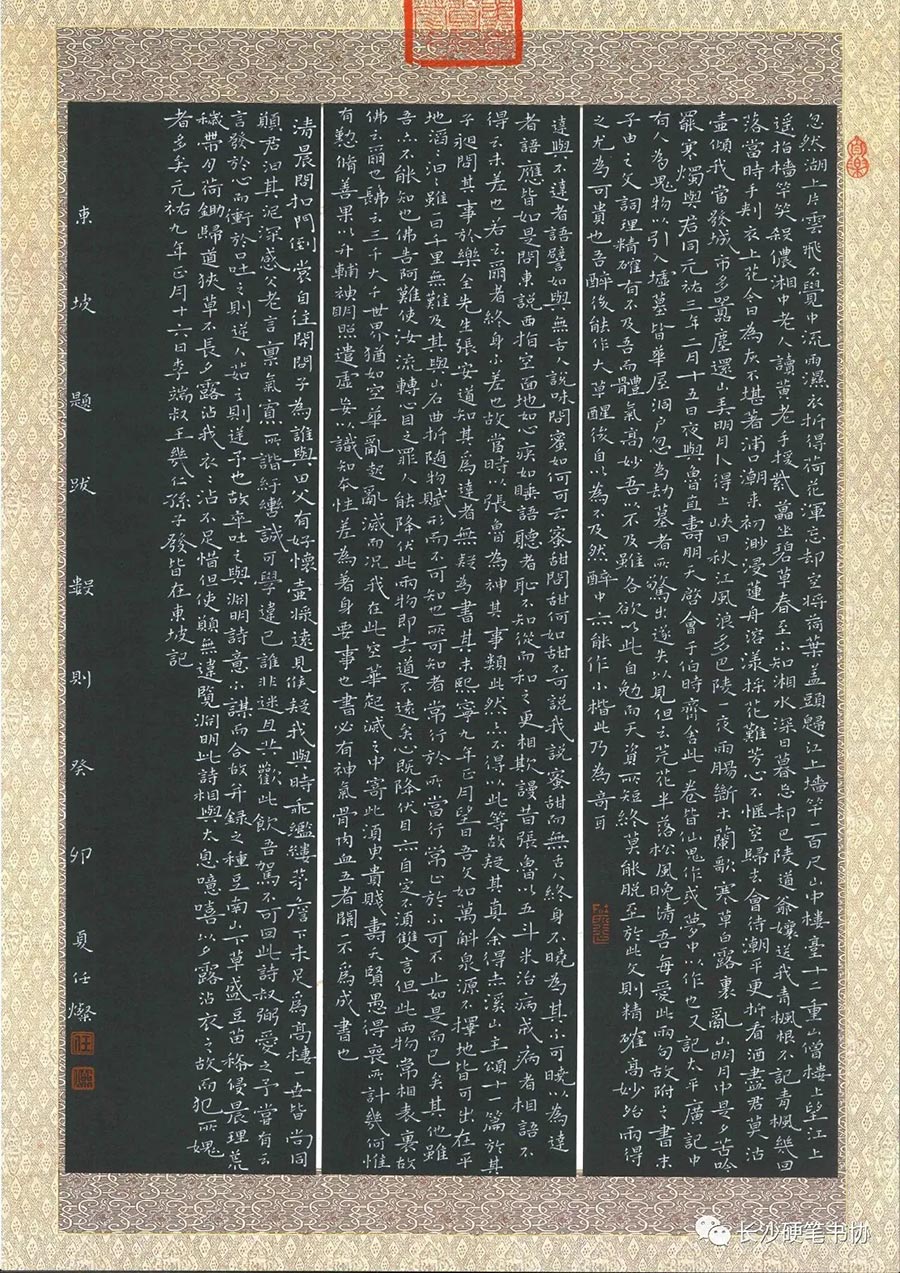 忽然湖上片雲飛不覺中流雨濕衣折得荷花渾忘却空將荷葉蓋頭歸江上墻竿一百尺山中樓臺十二重山僧樓上望江上
遥指檣竿笑殺儂湘中老人讀黃老手援紫藟坐碧草春至不知湘水深日暮忘却巴陵道爺孃送我青楓根不記青楓幾回
落當時手刺衣上花今日為灰不堪著浦口潮來初渺漫蓮舟溶漾採花難芳心不愜空歸去會待潮平更折看酒盡君莫沽
壺傾我當發城市多囂塵還山弄明月卜得上峽日秋江風浪多巴陵一夜雨腸斷木蘭歌寒草白露裏亂山明月中是夕苦吟
罷寒燭與君同元祐三年二月十五日夜與魯直壽朋天啓會于伯時齋舍此一卷皆仙鬼作或夢中所作也又記太平廣記中
有人為鬼物所引入墟墓皆華屋洞户忽為劫墓者所驚出遂失所見但云芫花半落松風晚清吾每愛此兩句故附之書末
子由之文詞理精確有不及吾而體氣高妙吾所不及雖各欲以此自勉而天資所短終莫能脱至於此文則精確高妙殆兩得
之尤為可貴也吾醉後能作大草醒後自以為不及然醉中亦能作小楷此乃為奇耳
達與不達者語譬如與無舌人說味問蜜如何可云蜜甜問甜何如甜不可說我說蜜甜而無舌人終身不曉為其不可曉以為達
者語應皆如是問東說西指空畫地如心疾如睡語聽者恥不知從而和之更相欺謾昔張魯以五斗米治病戒病者相語不
得云未差也若云爾者終身不差也故當時以張魯為神其事類此然亦不得以此等故疑其真余得赤溪山主頌十一篇於其
子昶問其事於樂全先生張安道知其為達者無疑為書其末熙寧九年正月望日吾文如萬斛泉源不擇地皆可出在平
地滔滔汩汩雖一日千里無難及其與山石曲折隨物賦形而不可知也所可知者常行於所當行常止於不可不止如是而已矣其他雖
吾亦不能知也佛告阿難使汝流轉心目之罪人能降伏此兩物即去道不遠矣心既降伏目亦自定不須雙言但此兩物常相表裏故
佛云爾也佛云三千大千世界猶如空華亂起亂滅而況我在此空華起滅之中寄此須臾貴賤壽夭賢愚得喪所計幾何惟
有懃脩善果以升輔神明照遣虛妄以識知本性差為著身要事也書必有神氣骨肉血五者闕一不為成書也
清晨聞扣門倒裳自往開問子為誰與田父有好懷壺漿遠見候疑我與時乖繿縷茅簷下未足為高棲一世皆尚同
願君汩其泥深感父老言稟氣寡所諧紆轡誠可學違己詎非迷且共歡此飲吾駕不可回此詩叔弼愛之予嘗有云
言發於心而衝於口吐之則逆人茹之則逆予也故卒吐之與淵明詩意不謀而合故并錄之種豆南山下草盛豆苗稀侵晨理荒
穢帶月荷鋤歸道狹草木長夕露沾我衣衣沾不足惜但使願無違覽淵明此詩相與太息噫嘻以夕露沾衣之故而犯所愧
者多矣元祐九年正月十六日李端叔王幾仁孫子發皆在東坡記
東坡題跋數則癸卯夏任燦
长沙硬笔书协